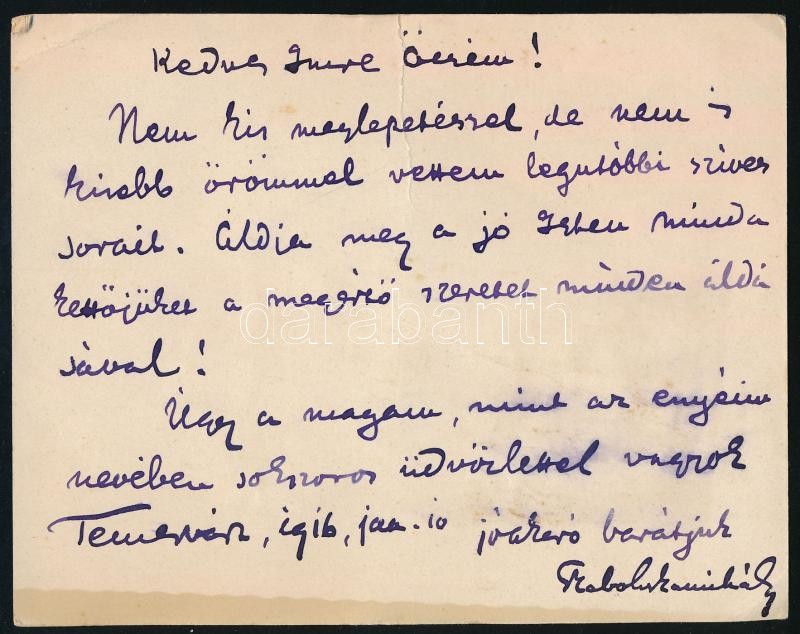 Kedves Imre Öcsém!
Nem kis meglepetéssel, de nem is
kisebb örömmel vettem legutóbbi szives
sorait. Áldja meg a jó Isten minda
kettőjüket a megértő szeretet minden áldá
sával!
Úgy a magam, mint az enyéim
nevében sokszoros üdvözlettel vagyok
Temesvár, 1916, jan. 10 jóakaró barátjuk
Szabolcska Mihály
darabanth